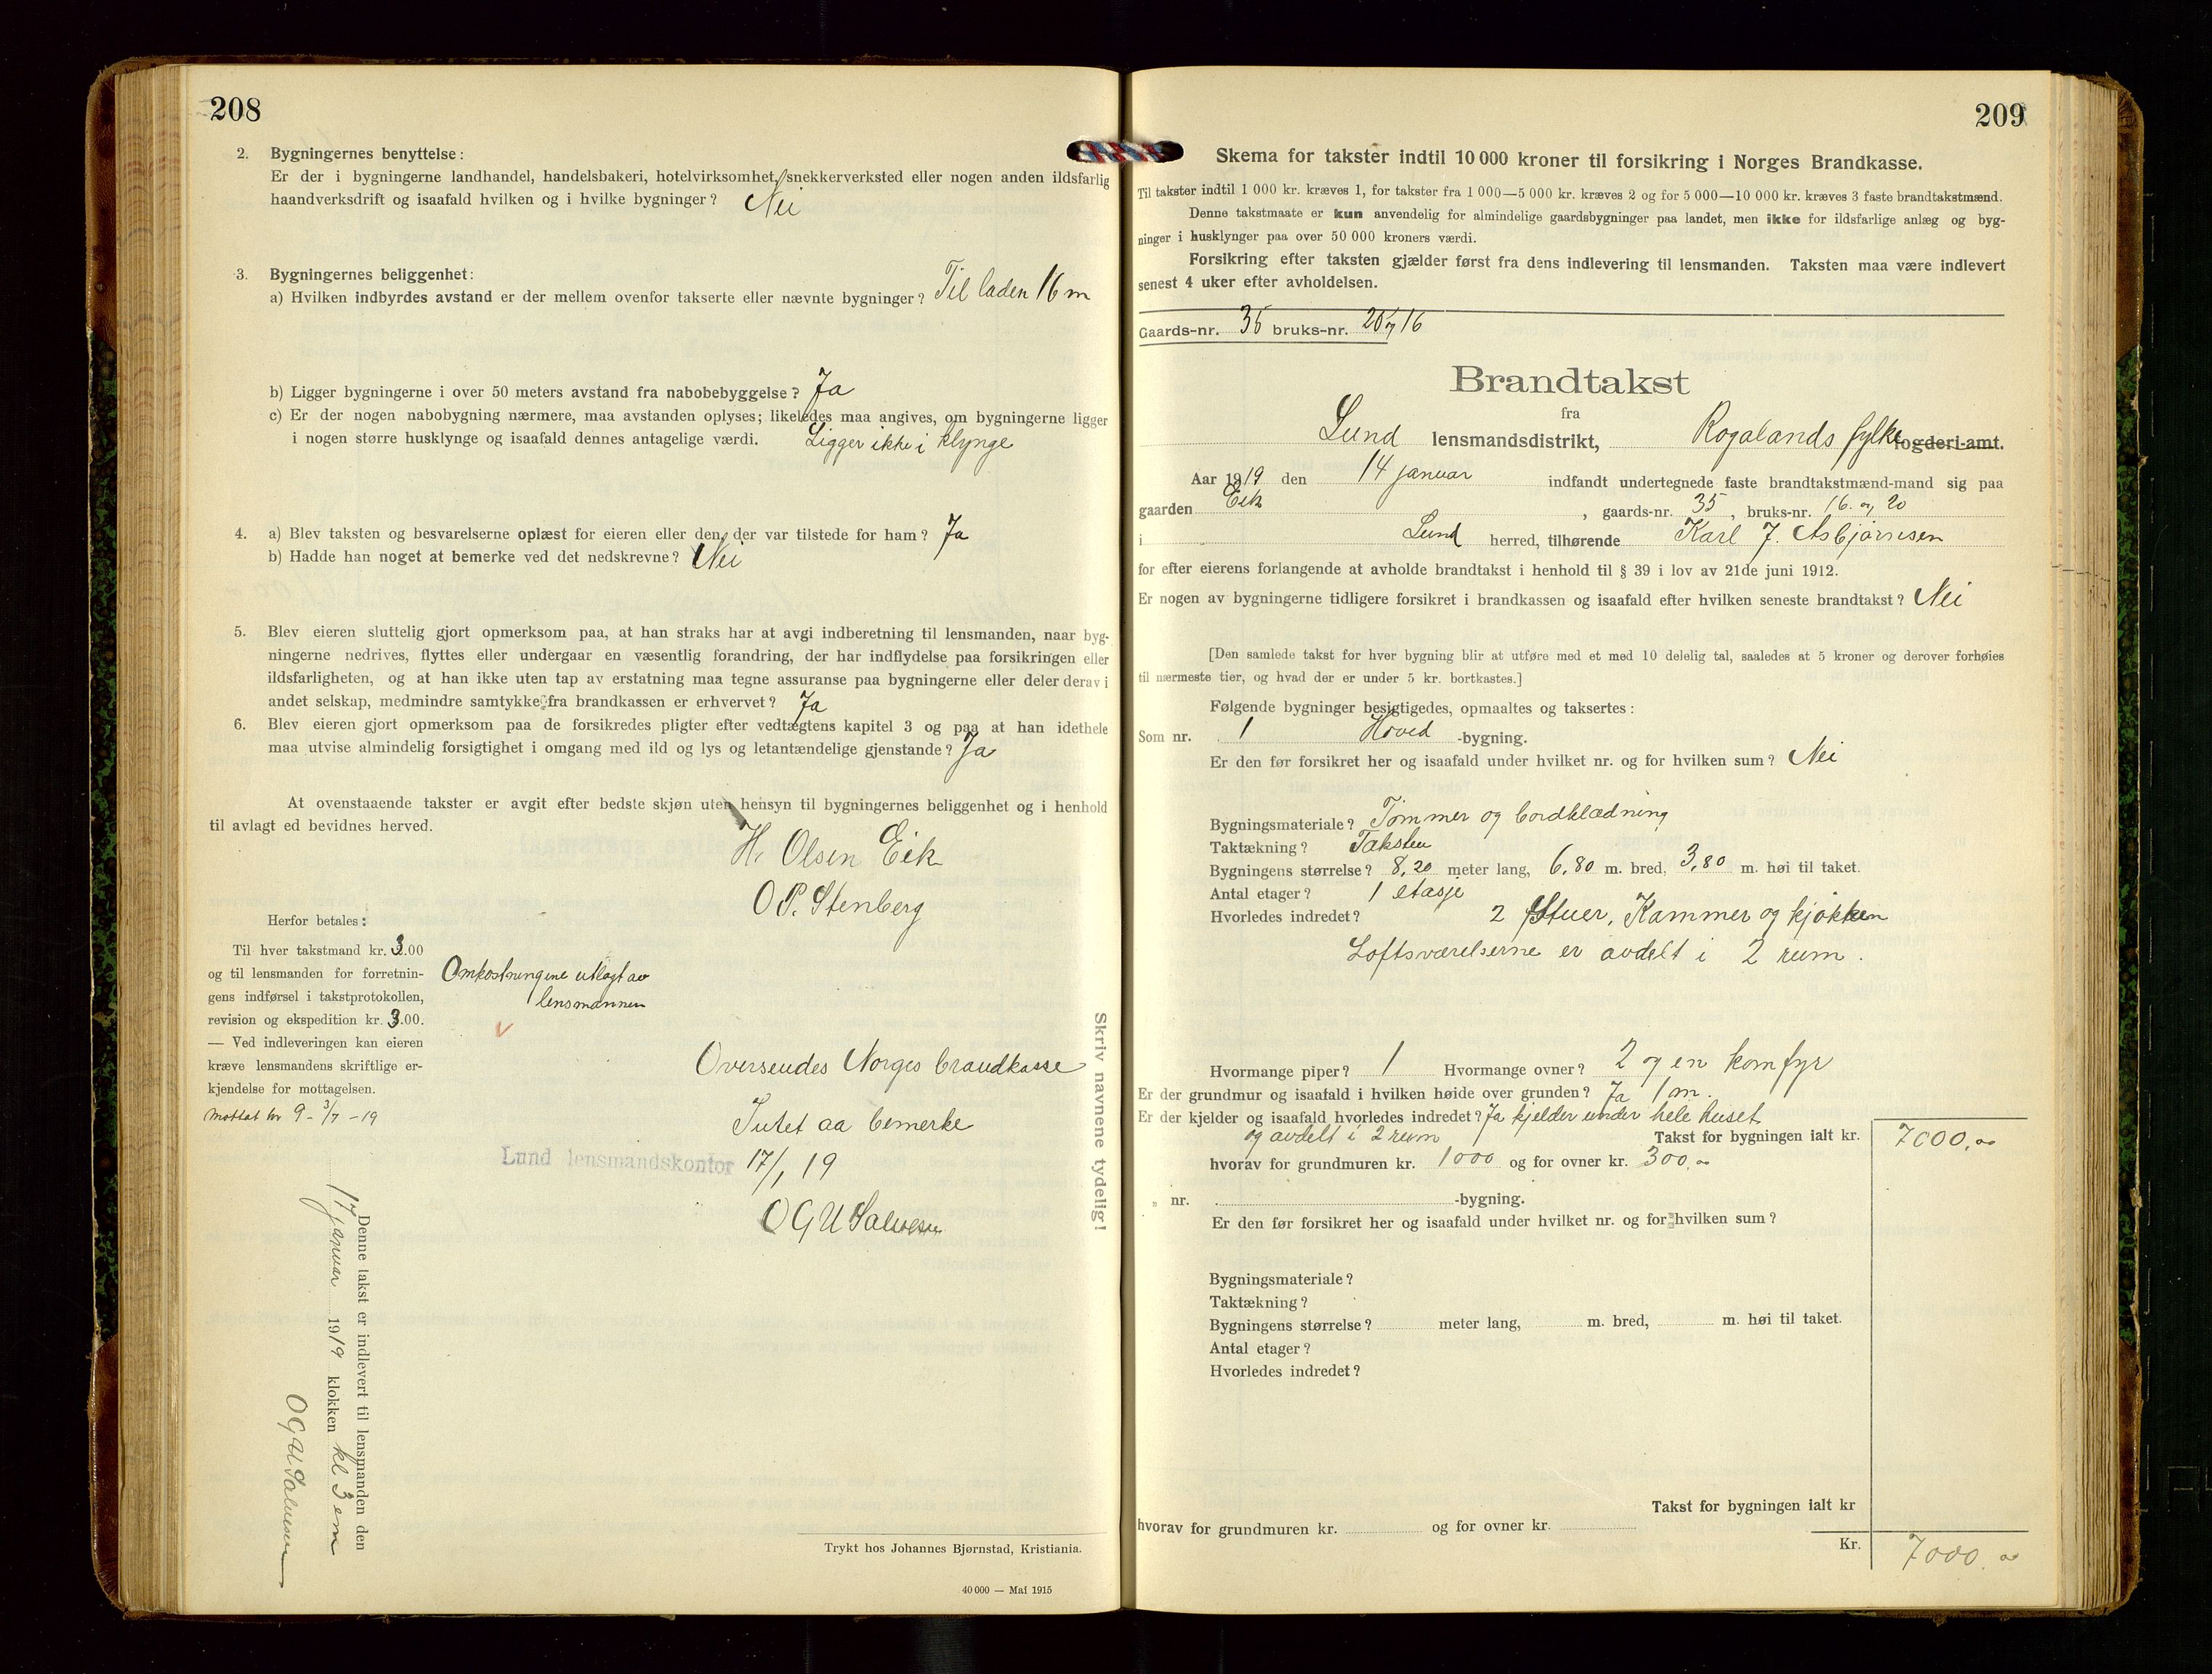 208
2. Bygningernes benyttelse:
Er der i bygningerne landhandel, handelsbakeri, hotelvirksomhet, snekkerverksted eller nogen anden ildsfarlig
haandverksdrift og isaafald hvilken og i hvilke bygninger? Nei
3. Bygningernes beliggenhet:
a) Hvilken indbyrdes avstand er der mellem ovenfor takserte eller nævnte bygninger? Til laden 16 m
b) Ligger bygningerne i over 50 meters avstand fra nabobebyggelse? Ja
c) Er der nogen nabobygning nærmere, maa avstanden oplyses; likeledes maa angives, om bygningerne ligger
i nogen større husklynge og isaafald dennes antagelige værdi. Ligger ikke i klynge
4. a) Blev taksten og besvarelserne oplæst for eieren eller den, der var tilstede for ham? Ja
b) Hadde han noget at bemerke ved det nedskrevne? Nei
5. Blev eieren sluttelig gjort opmerksom paa, at han straks har at avgi indberetning til lensmanden, naar byg-
ningerne nedrives, flyttes eller undergaar en væsentlig forandring, der har indflydelse paa forsikringen eller
ildsfarligheten, og at han ikke uten tap av erstatning maa tegne assuranse paa bygningerne eller deler derav i
andet selskap, medmindre samtykke fra brandkassen er erhvervet? Ja
6. Blev eieren gjort opmerksom paa de forsikredes pligter efter vedtægtens kapitel 3 og paa at han idethele
maa utvise almindelig forsigtighet i omgang med ild og lys og letantændelige gjenstande? Ja
At ovenstaaende takster er avgit efter bedste skjøn uten hensyn til bygningernes beliggenhet og i henhold
til avlagt ed bevidnes herved.
H. Olsen Eik
O P. Stenberg
Herfor betales:
Til hver takstmand kr. 3.00
og til lensmanden for forretnin-
gens indførsel i takstprotokollen,
revision og ekspedition kr. 3.00.
— Ved indleveringen kan eieren
kræve lensmandens skriftlige er-
kjendelse for mottagelsen.
Mottat kr 9 - 3/7 - 19
Omkostningene utlagt av
lensmannen
Oversendes Norges brandkasse
Intet aa bemerke
Lund lensmandskontor 17/1 19
O G U Salvesen
Skriv navnene tydelig!
Denne takst er indlevert til lensmanden den
17 januar 1919 klokken kl 3 em
O G U Salvesen
Trykt hos Johannes Bjørnstad, Kristiania.
40 000 — Mai 1915
209
Skema for takster indtil 10 000 kroner til forsikring i Norges Brandkasse.
Til takster indtil 1 000 kr. kræves 1, for takster fra 1 000—5 000 kr. kræves 2 og for 5 000—10 000 kr. kræves 3 faste brandtakstmænd.
Denne takstmaate er kun anvendelig for almindelige gaardsbygninger paa landet, men ikke for ildsfarlige anlæg og byg-
ninger i husklynger paa over 50 000 kroners værdi.
Forsikring efter taksten gjælder først fra dens indlevering til lensmanden. Taksten maa være indlevert
senest 4 uker efter avholdelsen.
Gaards-nr. 35 bruks-nr. 20 og 16
Brandtakst
fra
Lund lensmandsdistrikt, Rogalands fylke fogderi-amt.
Aar 1919 den 14 januar indfandt undertegnede faste brandtakstmænd-mand sig paa
gaarden Eik, gaards-nr. 35, bruks-nr. 16. og 20
i Lund herred, tilhørende Karl J. Asbjørnsen
for efter eierens forlangende at avholde brandtakst i henhold til § 39 i lov av 21de juni 1912.
Er nogen av bygningerne tidligere forsikret i brandkassen og isaafald efter hvilken seneste brandtakst? Nei
[Den samlede takst for hver bygning blir at utføre med et med 10 delelig tal, saaledes at 5 kroner og derover forhøies
til nærmeste tier, og hvad der er under 5 kr. bortkastes.]
Følgende bygninger besigtigedes, opmaaltes og taksertes:
Som nr. 1 Hoved -bygning.
Er den før forsikret her og isaafald under hvilket nr. og for hvilken sum? Nei
Bygningsmateriale? Tømmer og bordklædning
Taktækning? Taksten
Bygningens størrelse? 8,20 meter lang, 6,80 m. bred, 3,80 m. høi til taket.
Antal etager? 1 etasje
Hvorledes indredet? 2 Stuer, Kammer og kjøkken
Loftsværelserne er avdelt i 2 rum.
Hvormange piper? 1 Hvormange ovner? 2 og en komfyr
Er der grundmur og isaafald i hvilken høide over grunden? Ja 1 m.
Er der kjelder og isaafald hvorledes indredet? Ja kjelder under hele huset
og avdelt i 2 rum Takst for bygningen ialt kr. 7000,00
hvorav for grundmuren kr. 1000 og for ovner kr. 300,00
„ nr. -bygning.
Er den før forsikret her og isaafald under hvilket nr. og for hvilken sum?
Bygningsmateriale?
Taktækning?
Bygningens størrelse? meter lang, m. bred, m. høi til taket.
Antal etager?
Hvorledes indredet?
Takst for bygningen ialt kr
hvorav for grundmuren kr. og for ovner kr.
Kr. 7000.00